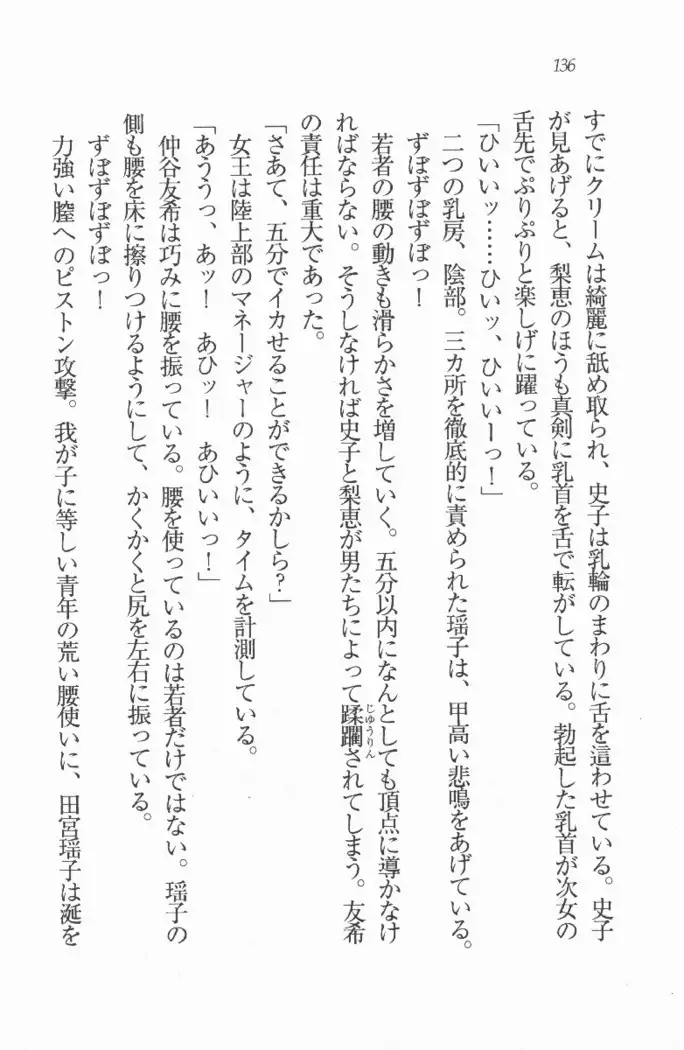 136
すでにクリームは綺麗に舐め取られ、史子は乳輪のまわりに舌を這わせている。史子
が見あげると、梨恵のほうも真剣に乳首を舌で転がしている。勃起した乳首が次女の
舌先でぷりぷりと楽しげに躍っている。
「ひいいッ……ひいッ、ひいいーっ！」
二つの乳房、陰部。三カ所を徹底的に責められた瑶子は、甲高い悲鳴をあげている。
ずぼずぼずぼっ！
若者の腰の動きも滑らかさを増していく。五分以内になんとしても頂点に導かなけ
ればならない。そうしなければ史子と梨恵が男たちによって蹂躙されてしまう。友希
じゅうりん
の責任は重大であった。
「さあて、五分でイカせることができるかしら？」
女王は陸上部のマネージャーのように、タイムを計測している。
「あううっ、あッ！　あひッ！　あひいいっ！」
仲谷友希は巧みに腰を振っている。腰を使っているのは若者だけではない。瑶子の
側も腰を床に擦りつけるようにして、かくかくと尻を左右に振っている。
ずぼずぼずぼっ！
力強い膣へのピストン攻撃。我が子に等しい青年の荒い腰使いに、田宮瑶子は涎を